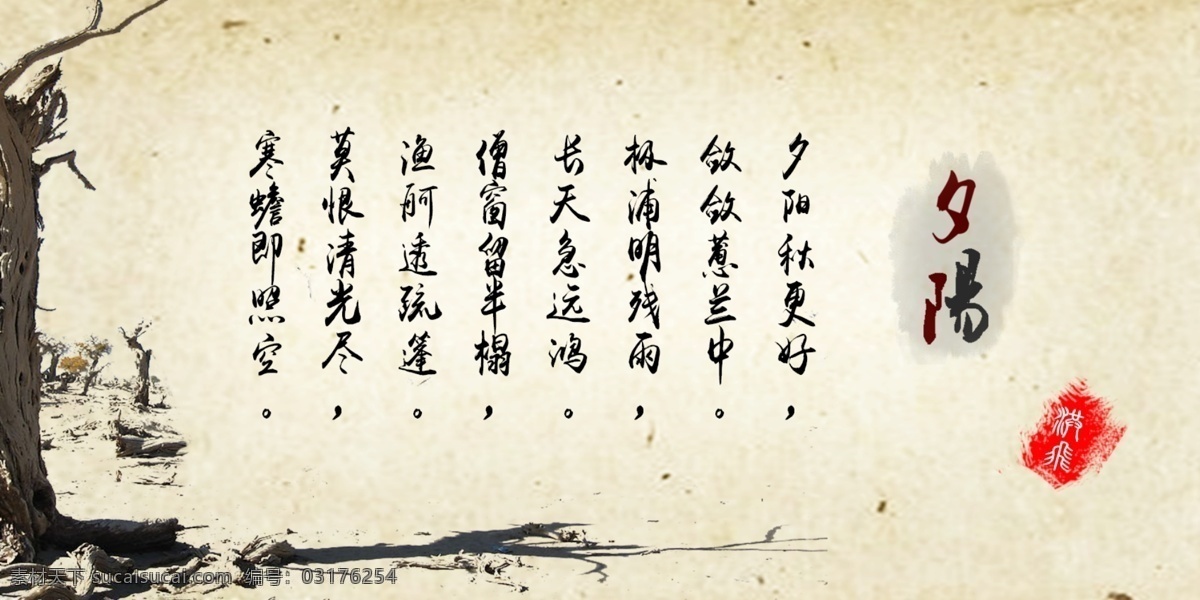 夕陽
洪飛
夕阳秋更好，
敛敛蕙兰中。
极浦明残雨，
长天急远鸿。
僧窗留半榻，
渔舸透疏篷。
莫恨清光尽，
寒蟾即照空。
素材天下 sucaisucai.com 编号：03176254